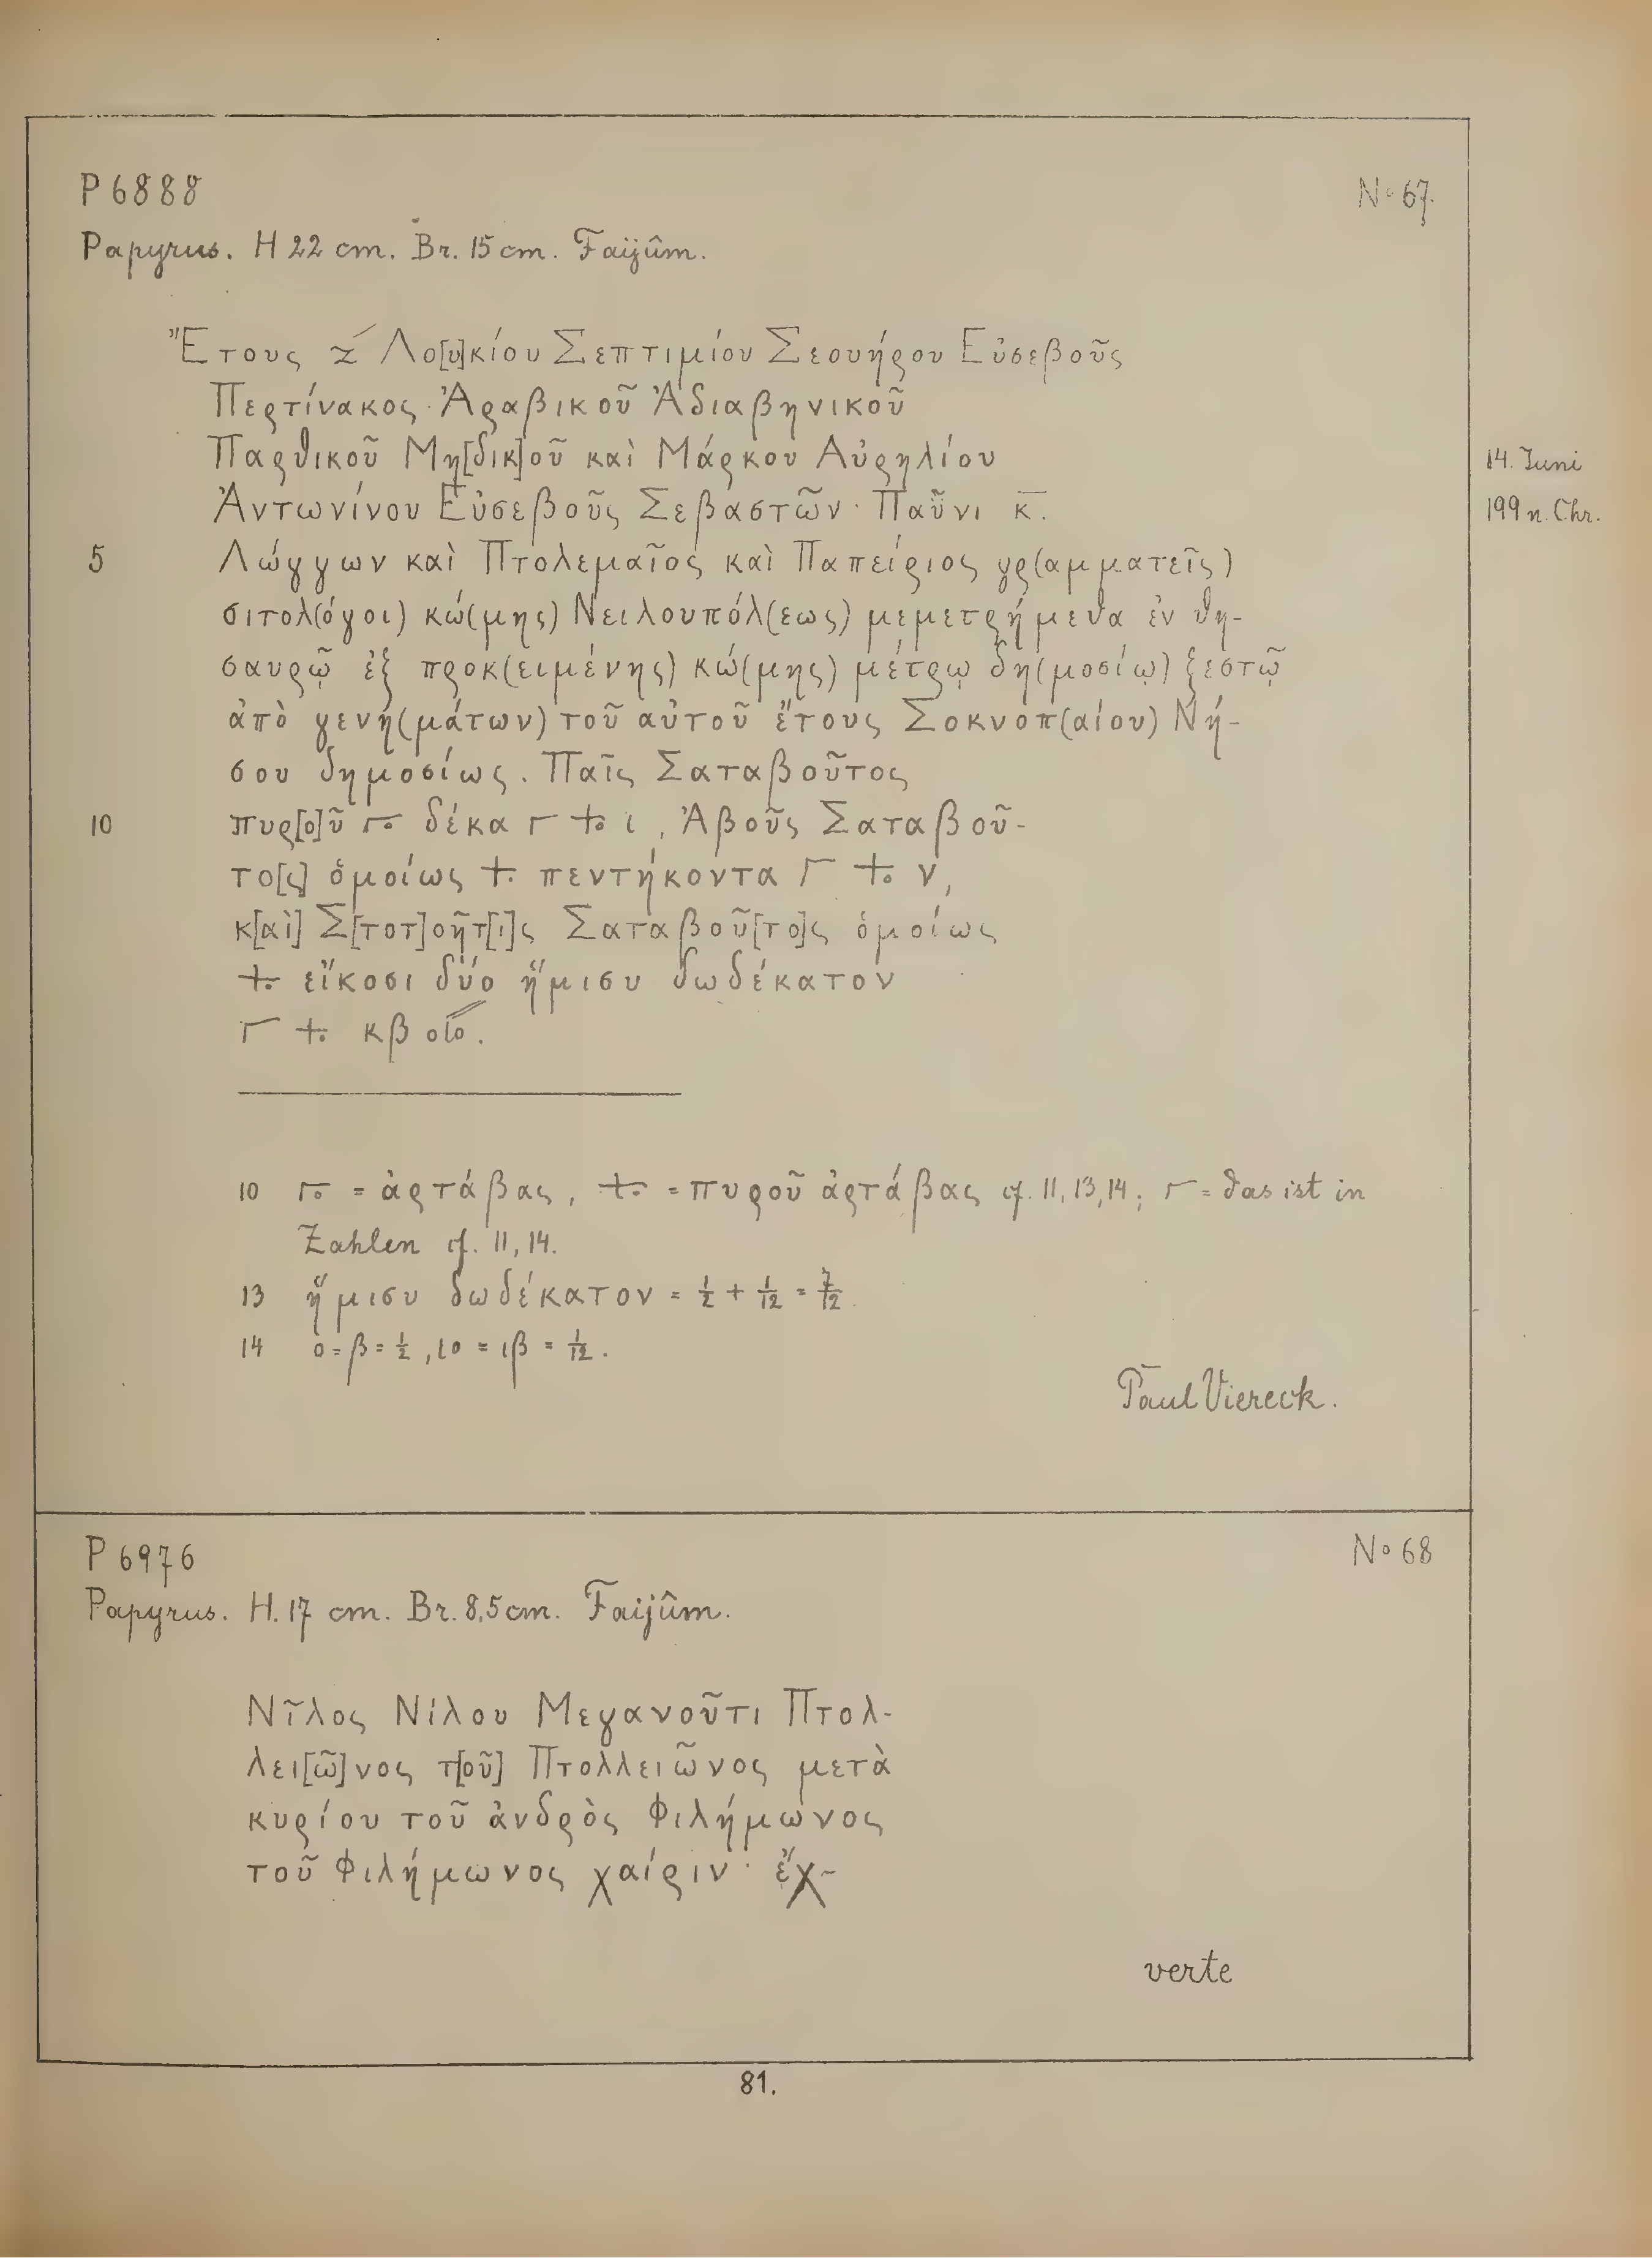 P 6888
No 67.
Papyrus. H 22 cm. Br. 15 cm. Faijûm.
Ἔτους ζ´ Λο[υ]κίου Σεπτιμίου Σεουήρου Εὐσεβοῦς
Περτίνακος Ἀραβικοῦ Ἀδιαβηνικοῦ
Παρθικοῦ Μη[δικ]οῦ καὶ Μάρκου Αὐρηλίου
14. Juni
Ἀντωνίνου Εὐσεβοῦς Σεβαστῶν· Παῦνι κ̅.
199 n. Chr.
5 Λώγγων καὶ Πτολεμαῖος καὶ Παπείριος γρ(αμματεῖς)
σιτολ(όγοι) κώ(μης) Νειλουπόλ(εως) μεμετρήμεθα ἐν θη-
σαυρῷ ἐξ προκ(ειμένης) κώ(μης) μέτρῳ δη(μοσίῳ) ξεστῷ
ἀπὸ γενη(μάτων) τοῦ αὐτοῦ ἔτους Σοκνοπ(αίου) Νή-
σου δημοσίως. Παῖς Σαταβοῦτος
10 πυρ[ο]ῦ δέκα ι, Ἀβοῦς Σαταβοῦ-
το[ς] ὁμοίως πεντήκοντα ν,
κ[αὶ] Σ[τοτ]οῆτ[ι]ς Σαταβοῦ[το]ς ὁμοίως
εἴκοσι δύο ἥμισυ δωδέκατον
κβ
10 = ἀρτάβας, = πυροῦ ἀρτάβας cf. 11, 13, 14; = das ist in
Zahlen cf. 11, 14.
13 ἥμισυ δωδέκατον = 1/2 + 1/12 = 7/12.
14 ο = β = 1/2, ιο = ιβ = 1/12.
Paul Viereck.
P 6976
No 68
Papyrus. H. 17 cm. Br. 8,5 cm. Faijûm.
Νῖλος Νίλου Μεγανοῦτι Πτολ-
λει[ῶ]νος τ[οῦ] Πτολλειῶνος μετὰ
κυρίου τοῦ ἀνδρὸς Φιλήμωνος
τοῦ Φιλήμωνος χαίριν· ἔχ-
verte
81.